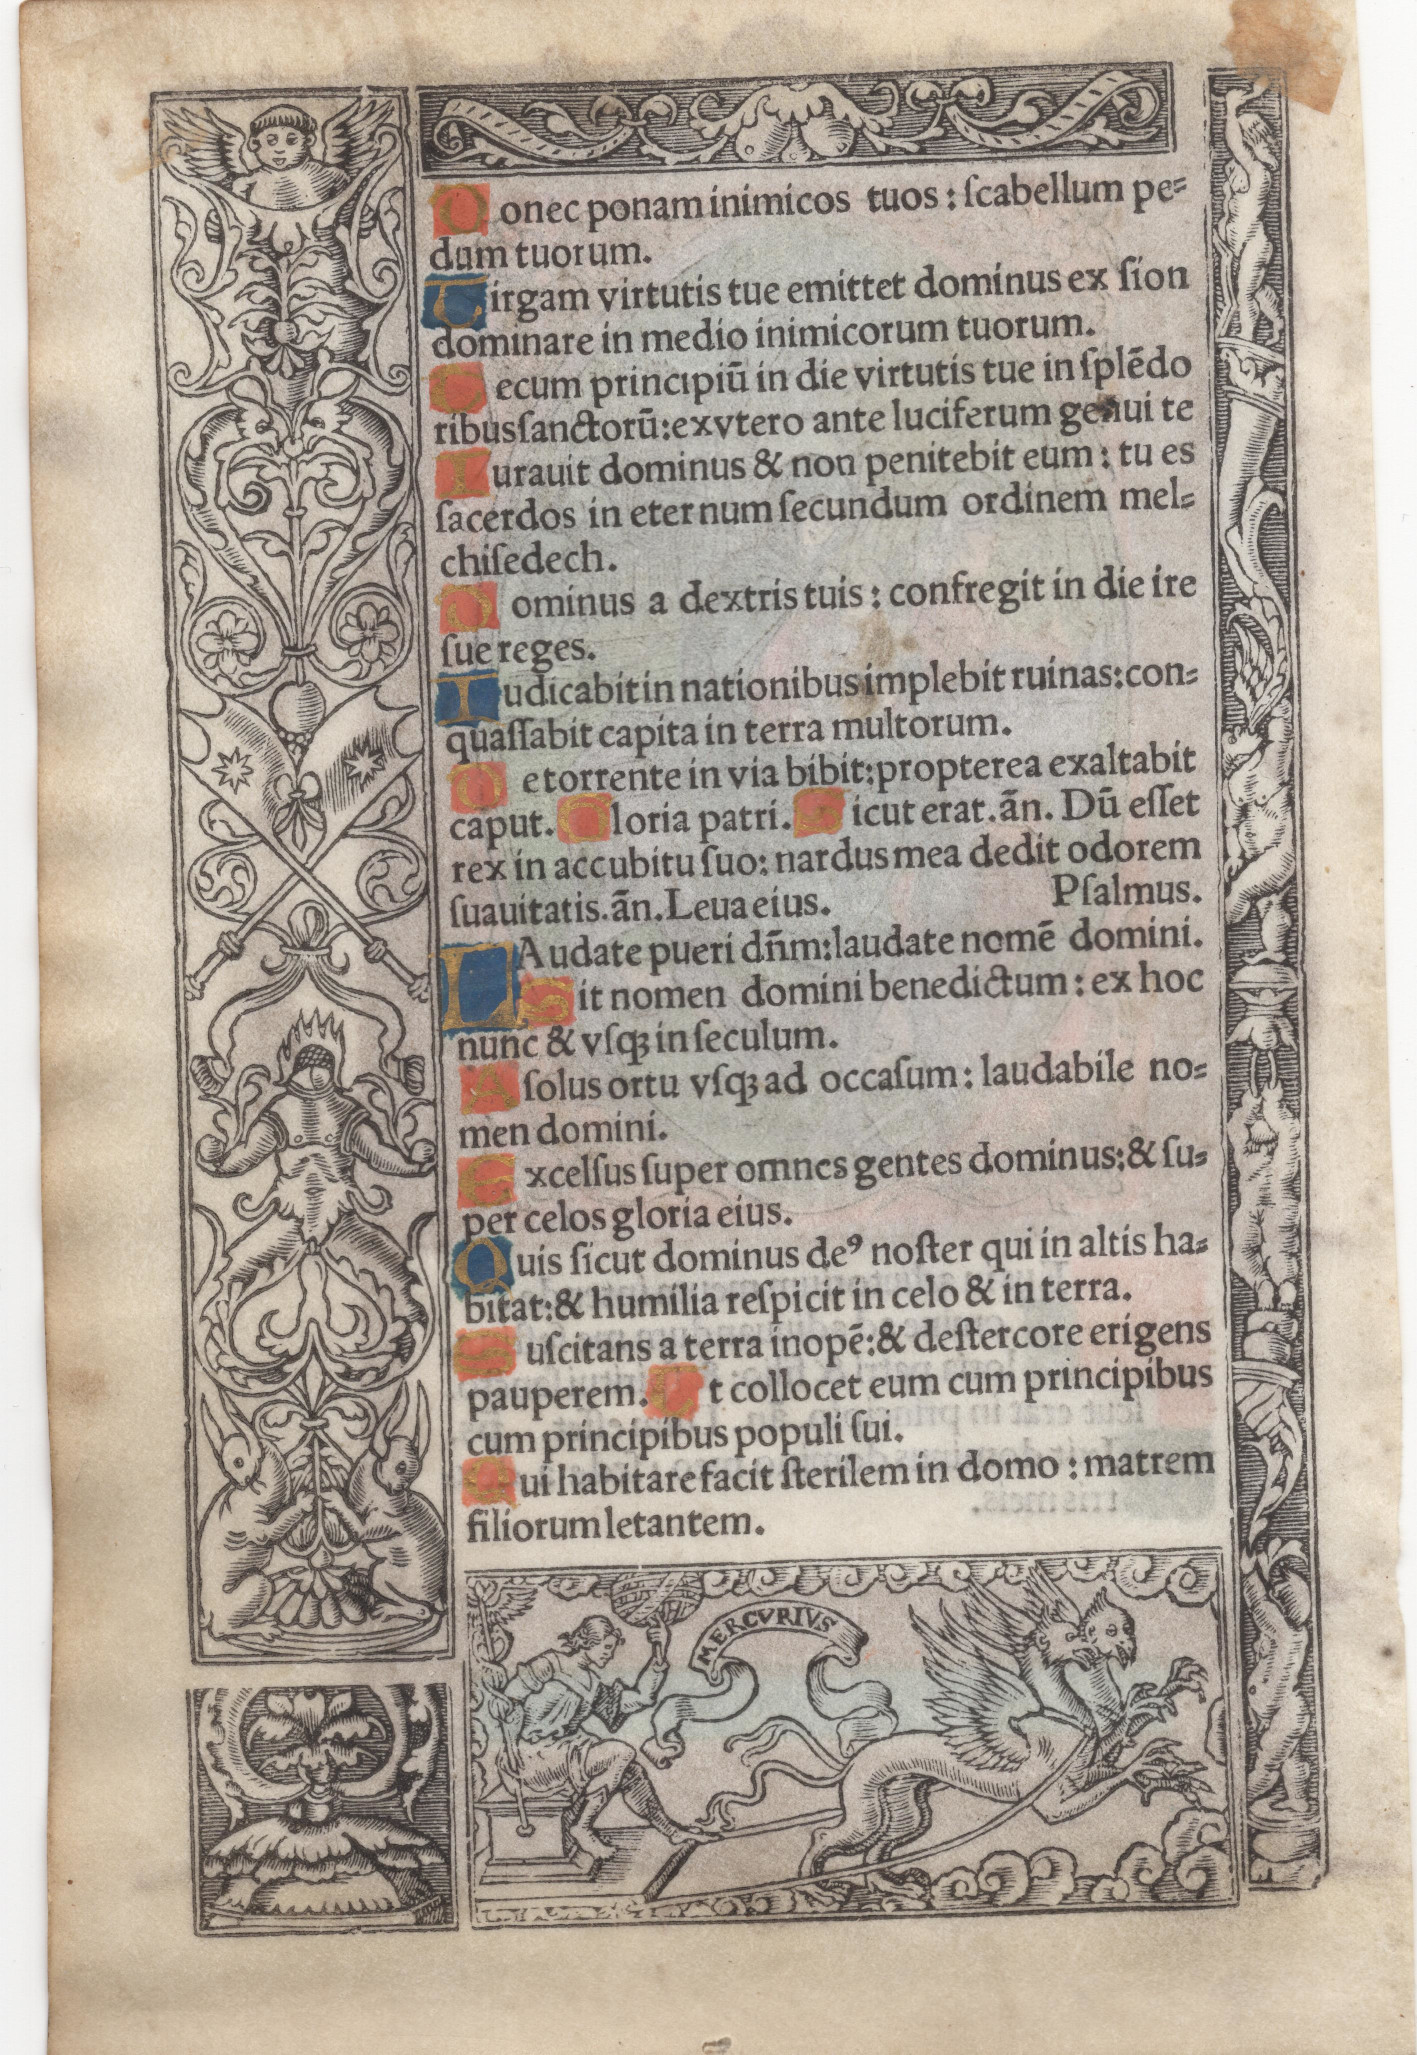 Donec ponam inimicos tuos : ſcabellum pe⸗
dum tuorum.
Uirgam virtutis tue emittet dominus ex ſion
dominare in medio inimicorum tuorum.
Tecum principiū in die virtutis tue in ſplēdo
ribus ſanctorū: ex vtero ante luciferum genui te
Iurauit dominus & non penitebit eum : tu es
ſacerdos in eternum ſecundum ordinem mel⸗
chiſedech.
Dominus a dextris tuis : confregit in die ire
ſue reges.
Iudicabit in nationibus implebit ruinas: con⸗
quaſſabit capita in terra multorum.
De torrente in via bibit: propterea exaltabit
caput. Gloria patri. Sicut erat. ān. Dū eſſet
rex in accubitu ſuo: nardus mea dedit odorem
ſuauitatis. ān. Leua eius. Pſalmus.
LAudate pueri dn̄m: laudate nomē domini.
Sit nomen domini benedictum : ex hoc
nunc & vſqꝫ in ſeculum.
A ſolus ortu vſqꝫ ad occaſum : laudabile no⸗
men domini.
Excelſus ſuper omnes gentes dominus: & ſu⸗
per celos gloria eius.
Quis ſicut dominus deꝰ noſter qui in altis ha⸗
bitat: & humilia reſpicit in celo & in terra.
Suſcitans a terra inopē: & de ſtercore erigens
pauperem. Et collocet eum cum principibus
cum principibus populi ſui.
Qui habitare facit ſterilem in domo : matrem
filiorum letantem.
MERCVRIVS